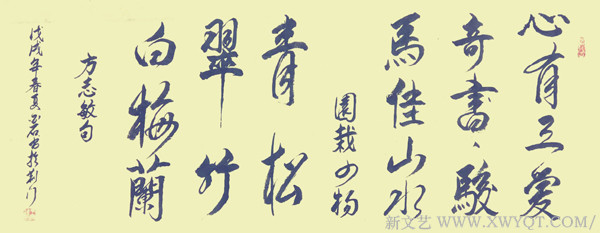 心有三愛
奇書、駿
馬佳山水
園栽四物
青松
翠竹
白梅蘭
方志敏句
戊戌年春夏
新文艺 - WWW.XWYQT.COM/